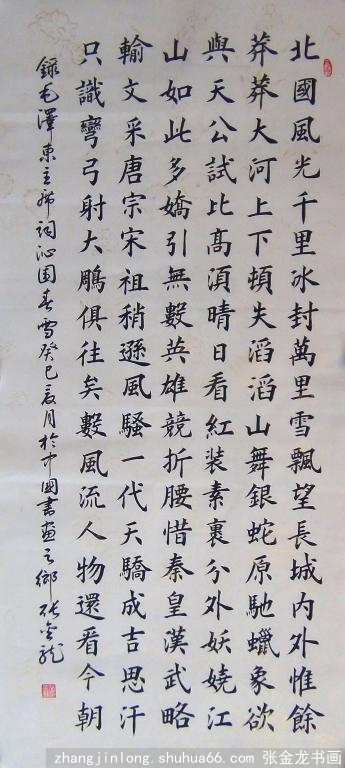 北國風光千里冰封萬里雪飄望長城內外惟餘
莽莽大河上下頓失滔滔山舞銀蛇原馳蠟象欲
與天公試比高湏晴日看紅装素裹分外妖嬈江
山如此多嬌引無數英雄競折腰惜秦皇漢武略
輸文采唐宗宋祖稍遜風騷一代天驕成吉思汗
只識彎弓射大鵰俱往矣數風流人物還看今朝
錄毛澤東主席詞沁園春雪癸巳夏月於中國書畫之鄉張金龍
zhangjinlong.shuhua66.com 张金龙书画